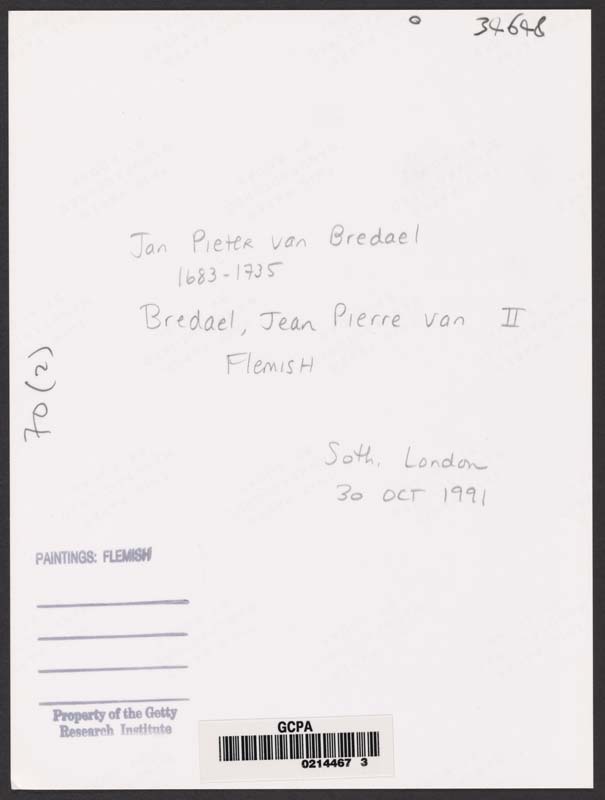 34648
Jan Pieter van Bredael
1683-1735
Bredael, Jean Pierre van II
Flemish
70(2)
Soth, London
30 OCT 1991
PAINTINGS: FLEMISH
Property of the Getty
Research Institute
GCPA
0214467 3